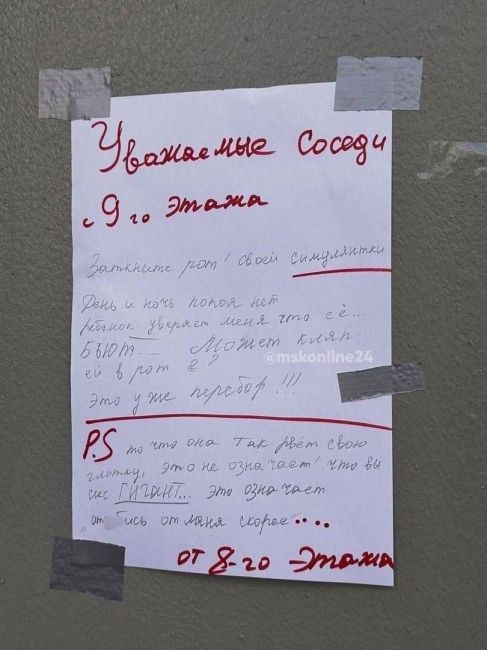 Уважаемые соседи
с 9 го этажа
Заткните рот своей симулянтки
День и ночь покоя нет
ребёнок уверяет меня что её...
БЬЮТ... Может кляп
@mskonline24
ей в рот е?
Это уже перебор!!!
P.S то что она так рвёт свою
глотку, это не означает что вы
секс ГИГАНТ... это означает
"от бись от меня скорее....
от 8-го этажа